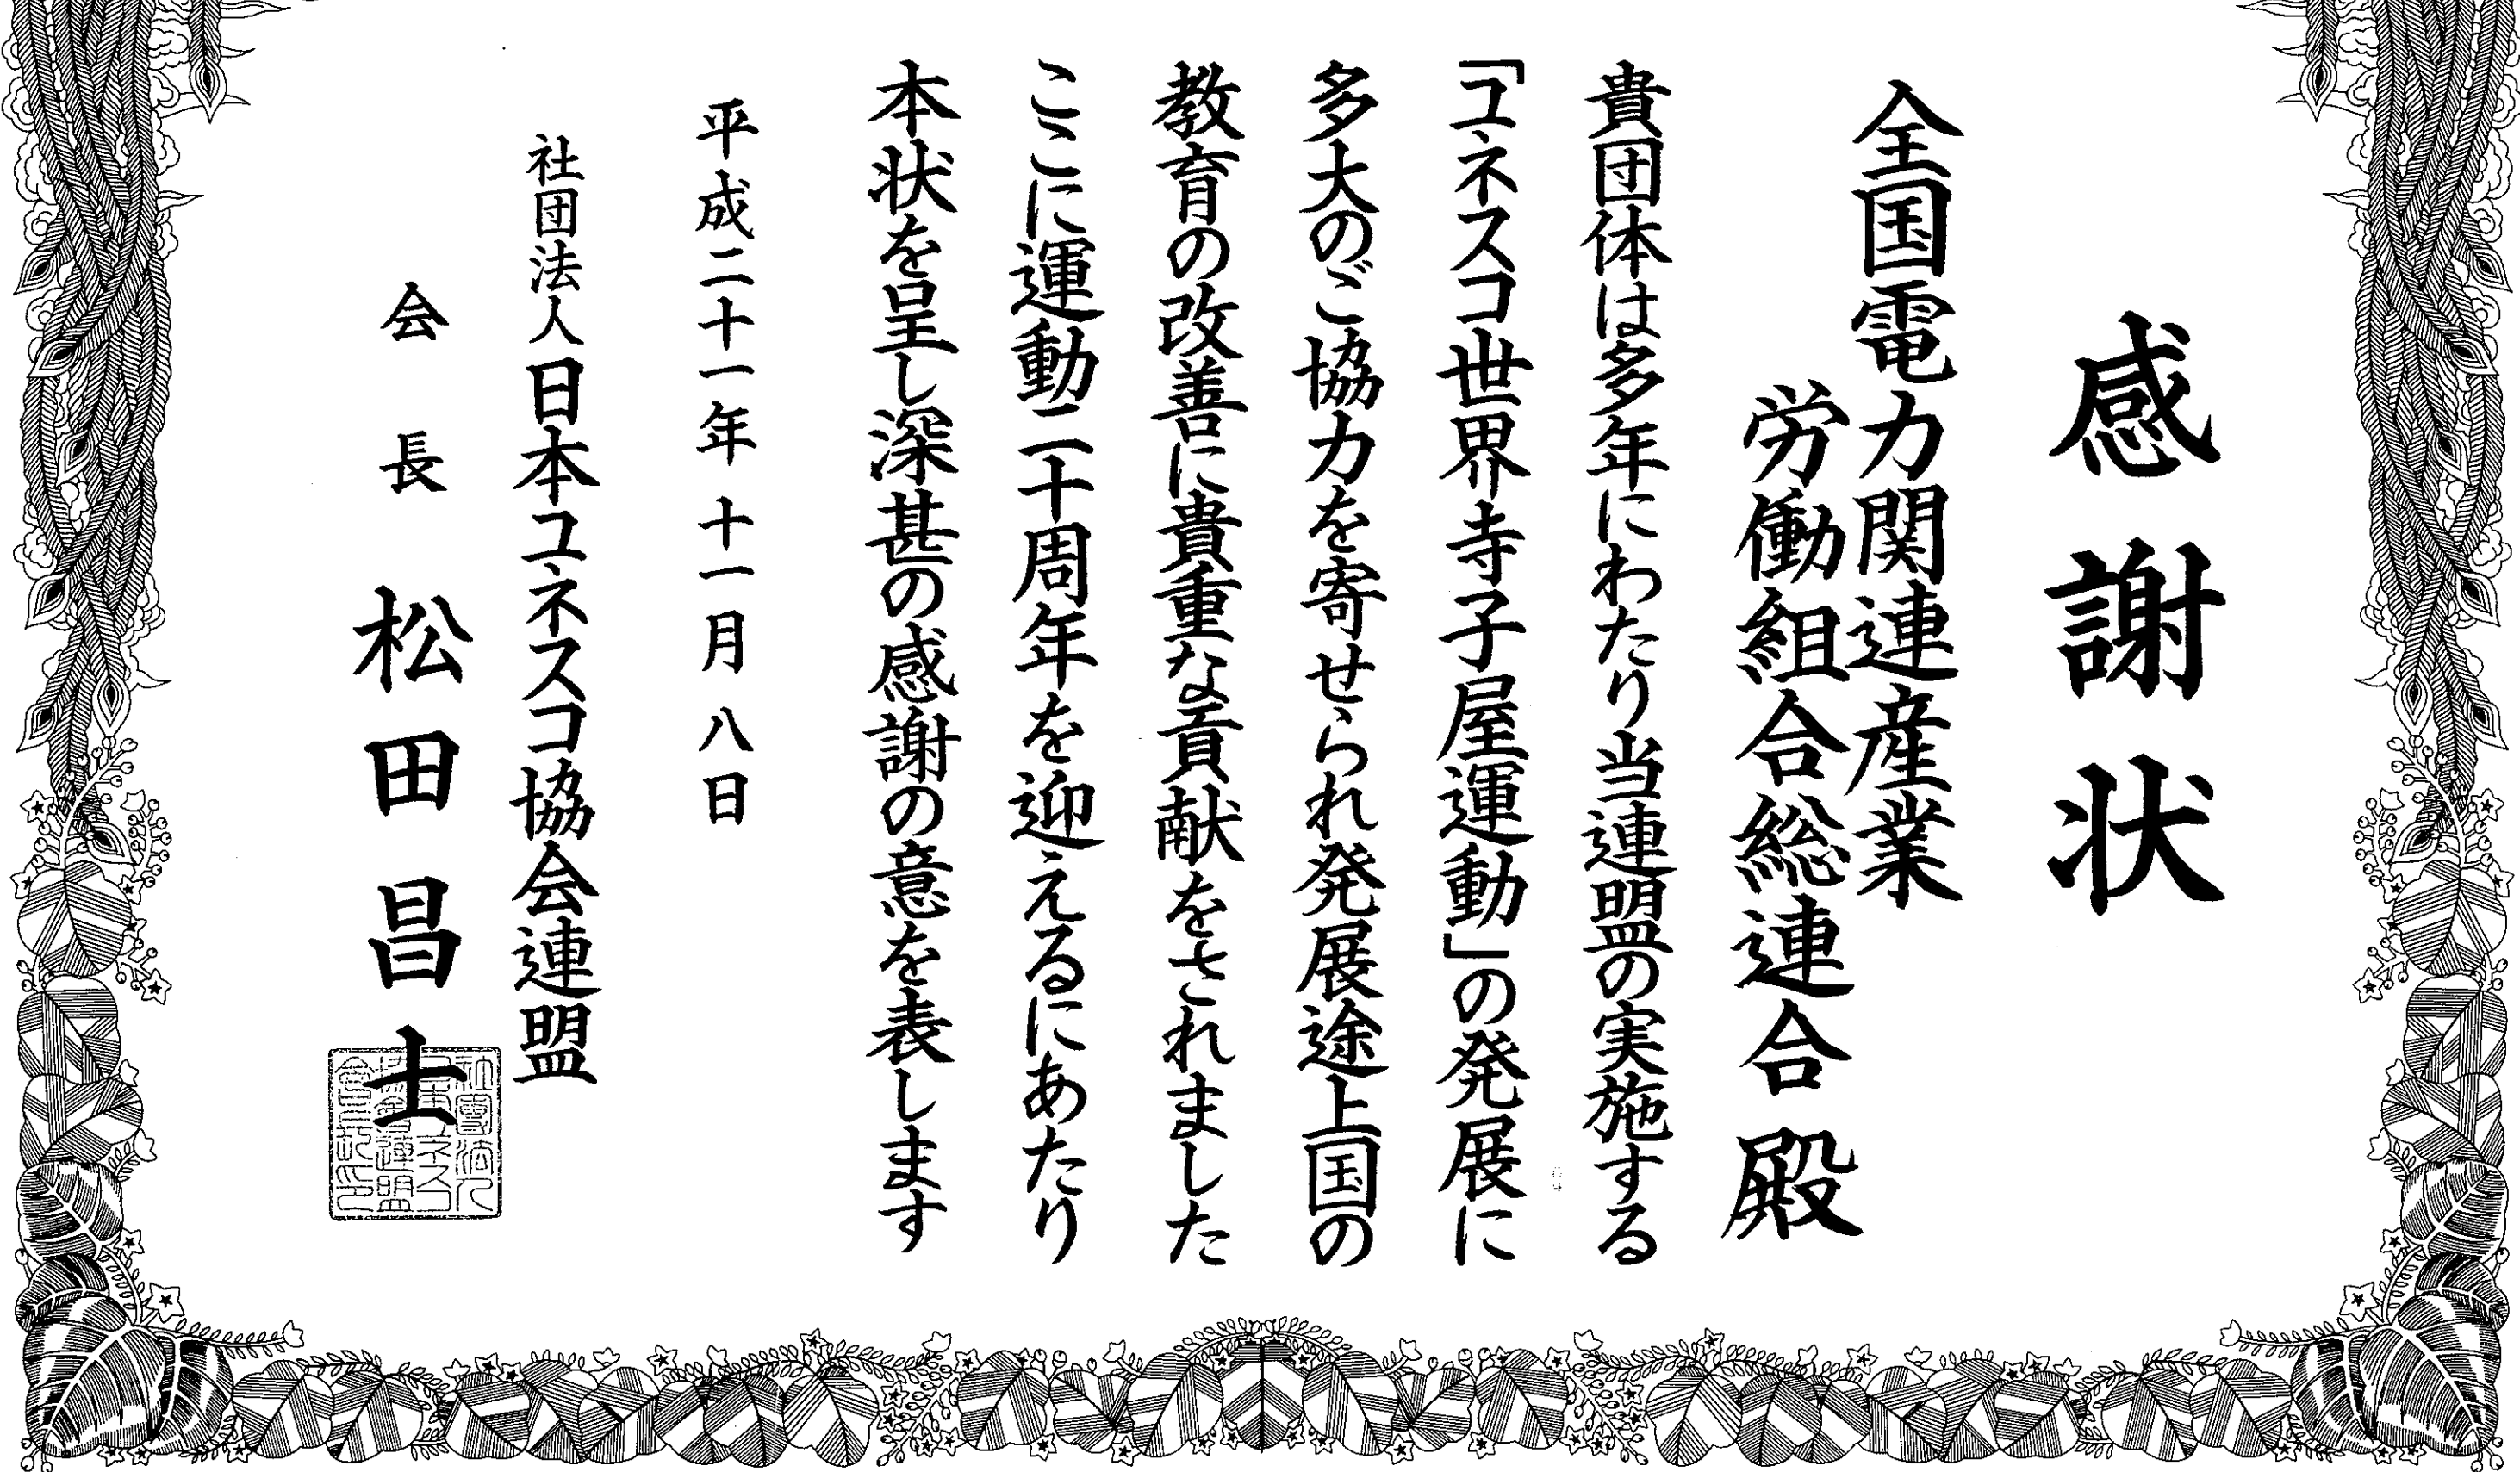 感謝状
全国電力関連産業
労働組合総連合 殿
貴団体は多年にわたり当連盟の実施する
「ユネスコ世界寺子屋運動」の発展に
多大のご協力を寄せられ発展途上国の
教育の改善に貴重な貢献をされました
ここに運動二十周年を迎えるにあたり
本状を呈し深甚の感謝の意を表します
平成二十一年 十一月 八日
社団法人日本ユネスコ協会連盟
会長 松田昌士